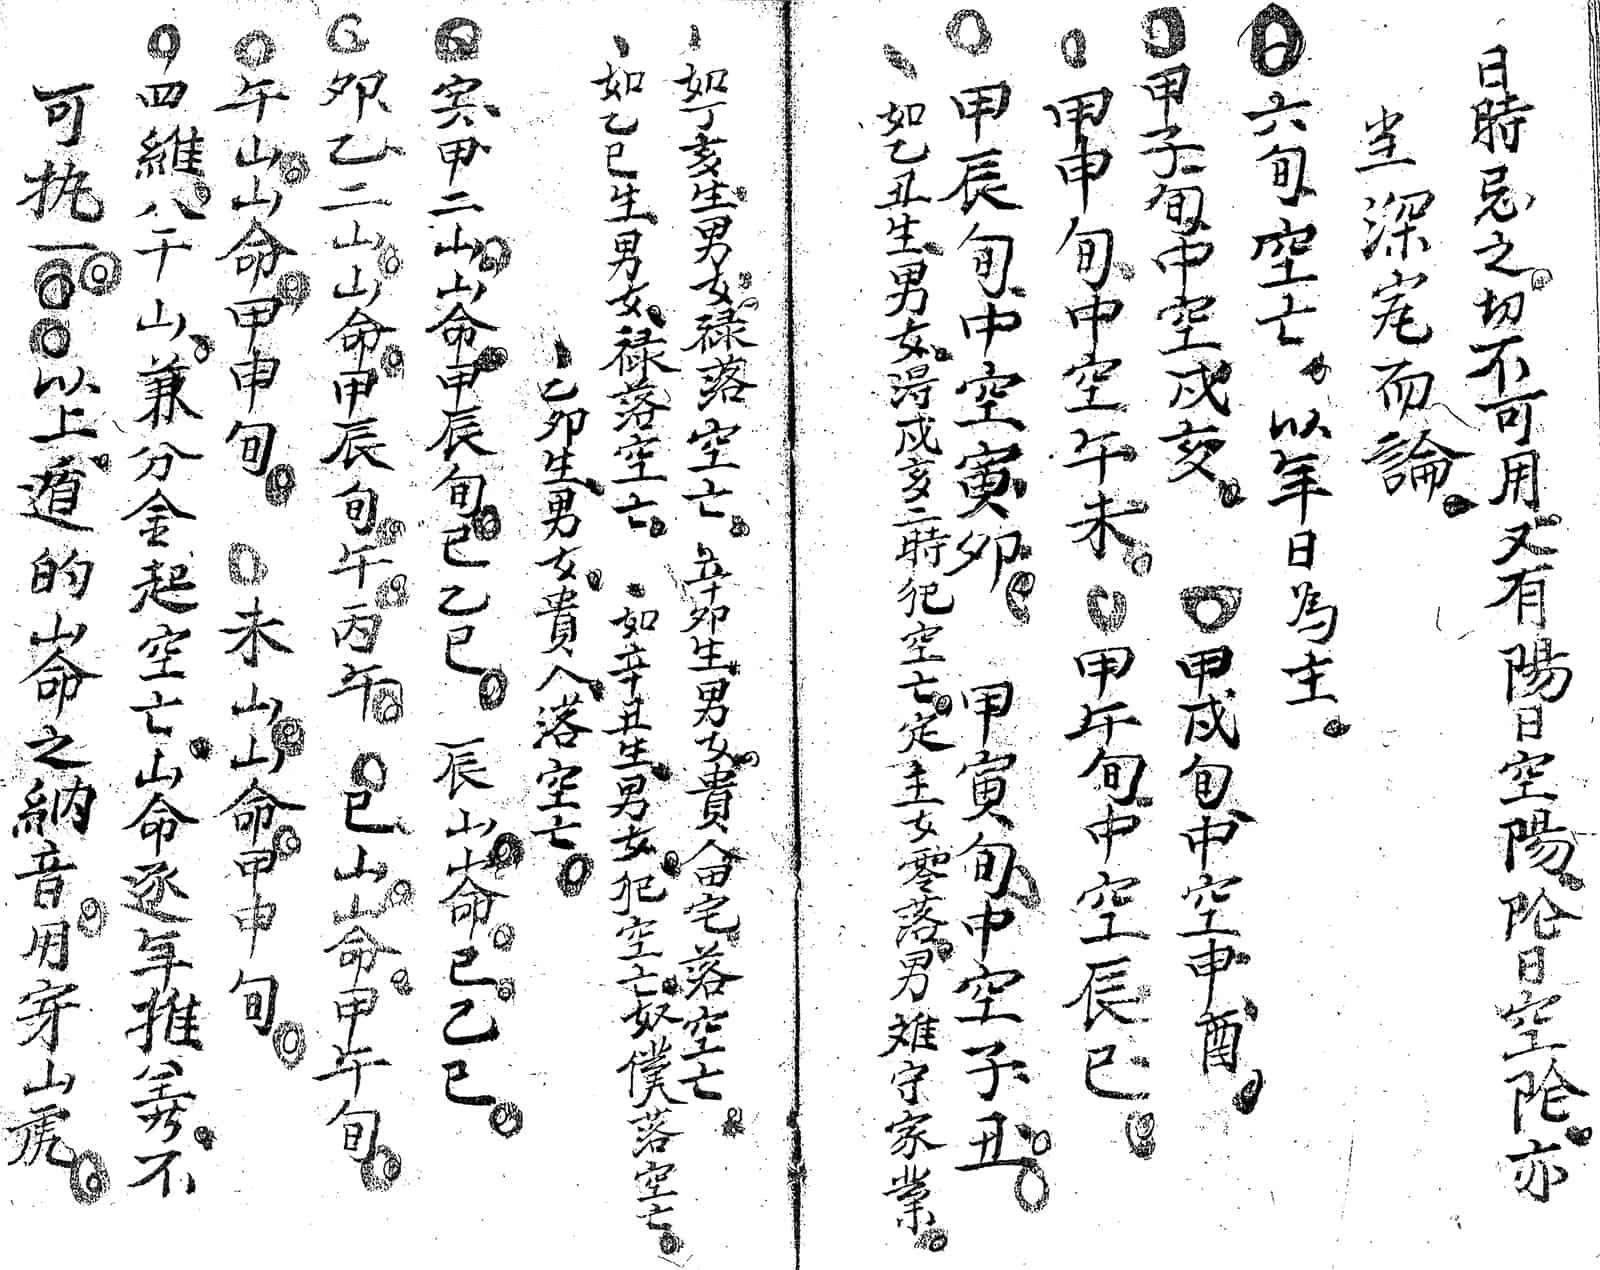 日時忌之切不可用又有陽日空陽陰日空陰亦
当深究而論
六旬空亡以年日為主
甲子旬中空戌亥 甲戌旬中空申酉
甲申旬中空午未 甲午旬中空辰巳
甲辰旬中空寅卯 甲寅旬中空子丑
如乙丑生男女得戌亥二時犯空亡定主女零落男难守家業
如丁亥生男女禄落空亡 辛卯生男女貴人田宅落空亡
如乙巳生男女禄落空亡 如辛丑生男女犯空亡奴僕落空亡
乙卯生男女貴人落空亡
寅甲二山山命甲辰旬巳乙巳 辰山山命巳乙巳
卯乙二山山命甲辰旬午丙午 巳山山命甲午旬
午山山命甲申旬 未山山命甲申旬
四維八干山兼分金起空亡山命逐年推美不
可执一 以上遁的山命之納音用穿山虎